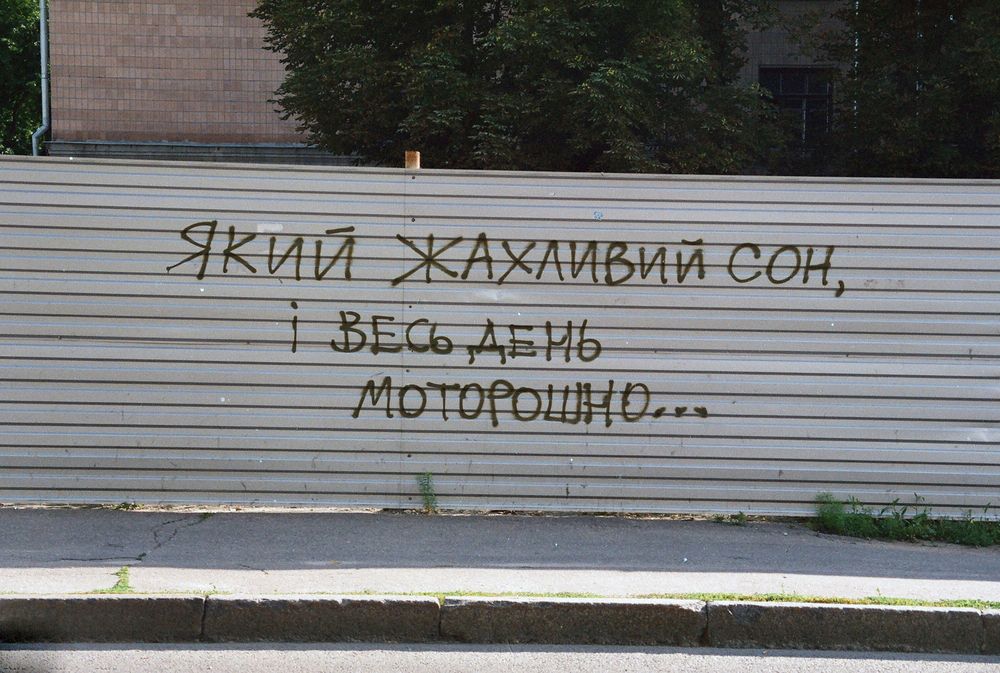 ЯКИЙ ЖАХЛИВИЙ СОН,
і ВЕСЬ ДЕНЬ
МОТОРОШНО...